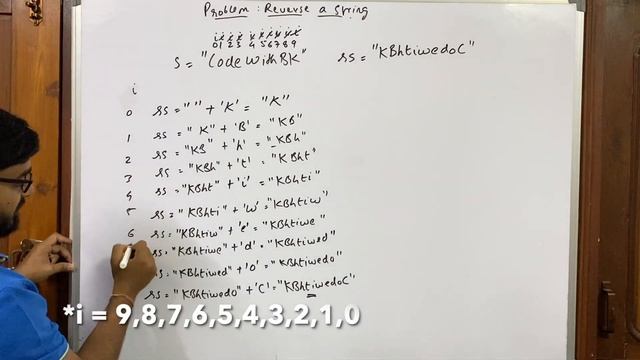 Problem : Reverse a string
i i i i i i i i i i
0 1 2 3 4 5 6 7 8 9
S = "CodeWithBK" rs = "KBhtiwedoC"
i
0 rs = " " + 'K' = "K"
1 rs = "K" + 'B' = "KB"
2 rs = "KB" + 'h' = "KBh"
3 rs = "KBh" + 't' = "KBht"
4 rs = "KBht" + 'i' = "KBhti"
5 rs = "KBhti" + 'w' = "KBhtiw"
6 rs = "KBhtiw" + 'e' = "KBhtiwe"
rs = "KBhtiwe" + 'd' = "KBhtiwed"
rs = "KBhtiwed" + 'o' = "KBhtiwedo"
rs = "KBhtiwedo" + 'C' = "KBhtiwedoC"
*i = 9,8,7,6,5,4,3,2,1,0